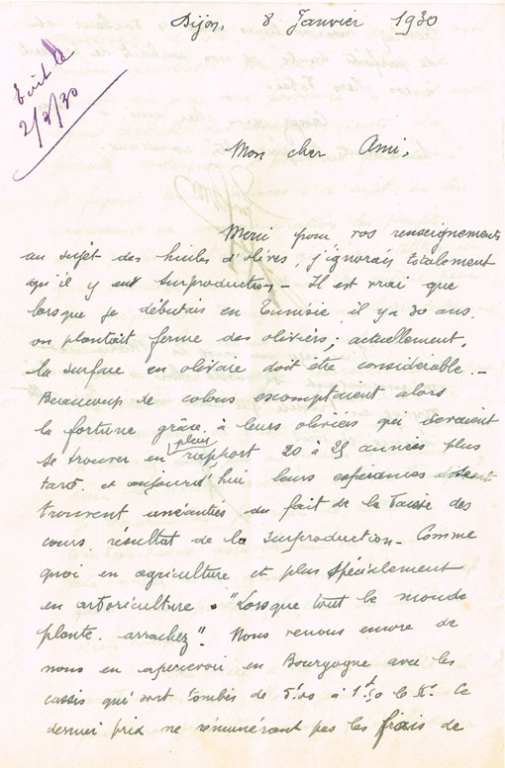 Dijon, 8 Janvier 1930
Ecrit le
2/3/30
Mon cher Ami,
Merci pour vos renseignements
au sujet des huiles d'olives, j'ignorais totalement
qu'il y eut surproduction - Il est vrai que
lorsque je débutais en Tunisie, il y a 30 ans,
on plantait ferme des oliviers; actuellement,
la surface en olivaie doit être considérable. -
Beaucoup de colons escomptaient alors
la fortune grâce à leurs oliviers qui devaient
se trouver en plein rapport 20 à 25 années plus
tard. et aujourd'hui leurs espérances se
trouvent anéanties du fait de la baisse des
cours, résultat de la surproduction - Comme
quoi en agriculture et plus spécialement
en arboriculture "Lorsque tout le monde
plante, arrachez". Nous venons encore de
nous en apercevoir en Bourgogne avec les
cassis qui sont tombés de à 1f50 le K°. Ce
dernier prix ne rémunérant pas les frais de